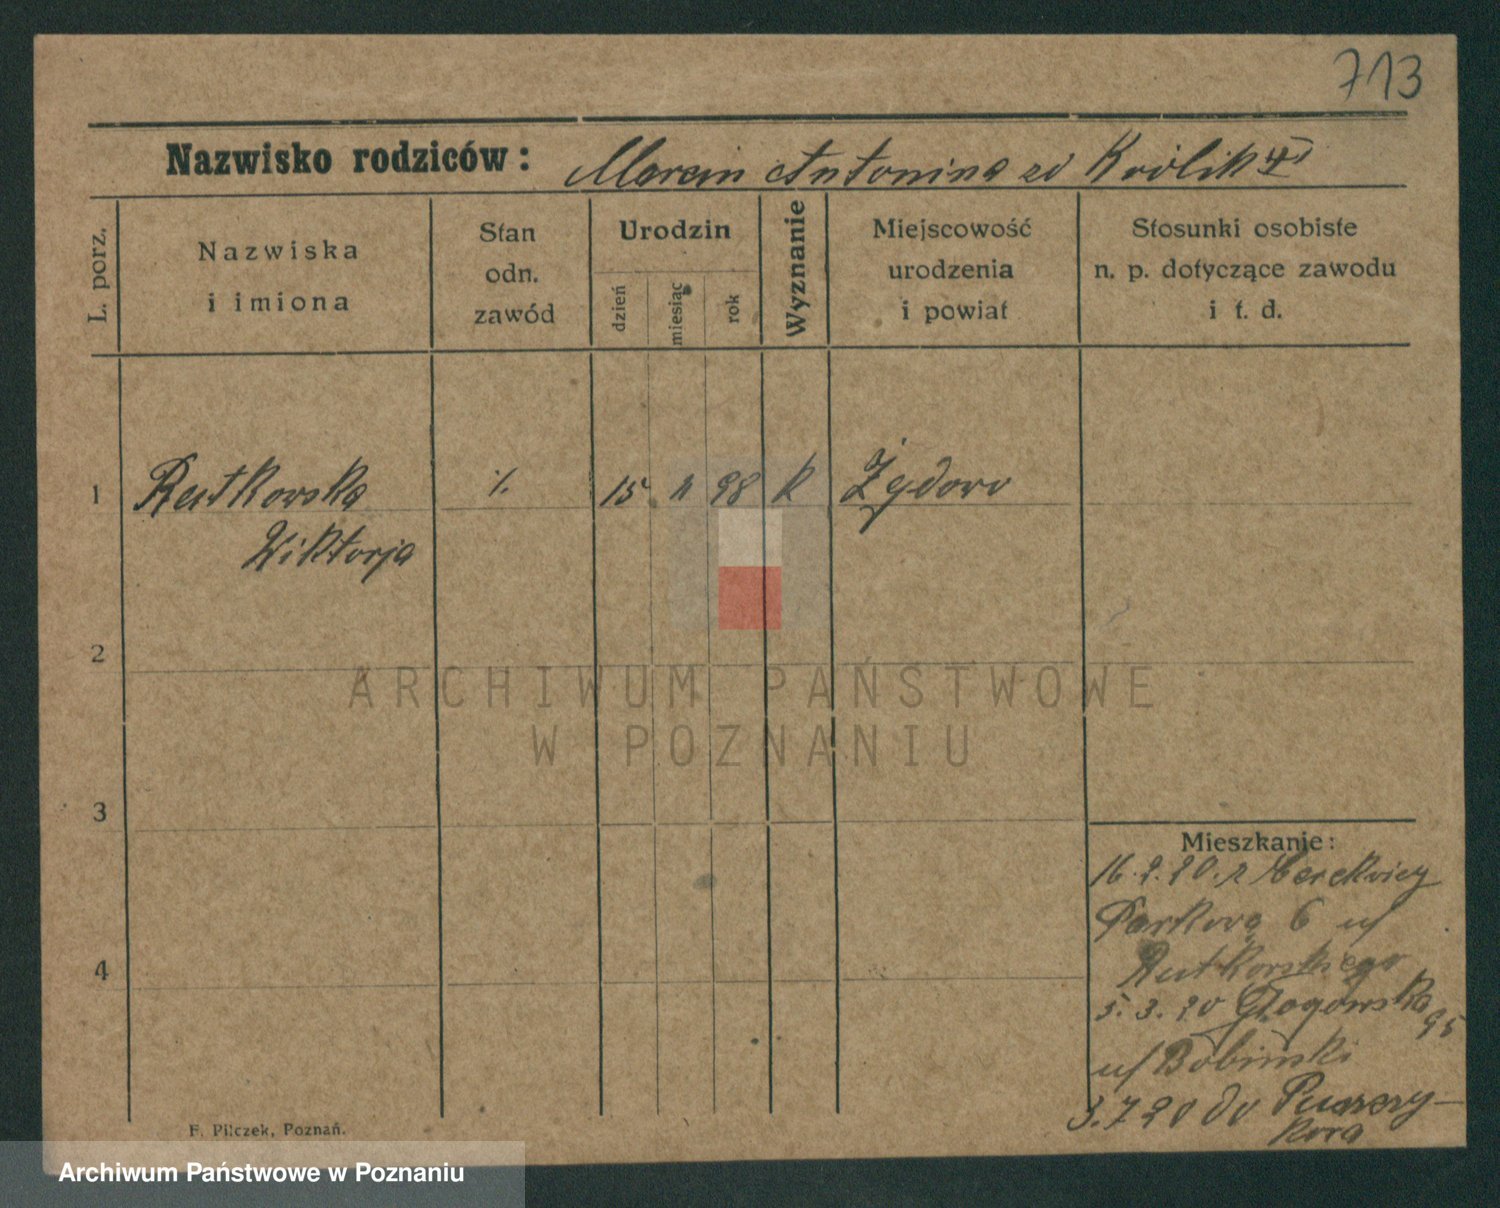 713
Nazwisko rodziców: Marcin Antonina zd Królik
L. porz.
Nazwiska
i imiona
Stan
odn.
zawód
Urodzin
dzień
miesiąc
rok
Wyznanie
Miejscowość
urodzenia
i powiat
Stosunki osobiste
n. p. dotyczące zawodu
i t. d.
1 Rutkowska 15 98 k Żydowo
Wiktorja
2
3
4
ARCHIWUM PAŃSTWOWE
W POZNANIU
Mieszkanie:
16.2.20. z Cerekvicy
Parkova 6 u/
Rutkowskiego
5.3.20 Głogowska
95
u/ Bobinski
3.7 20 do Puszczy-
kova
F. Pilczek, Poznań.
Archiwum Państwowe w Poznaniu